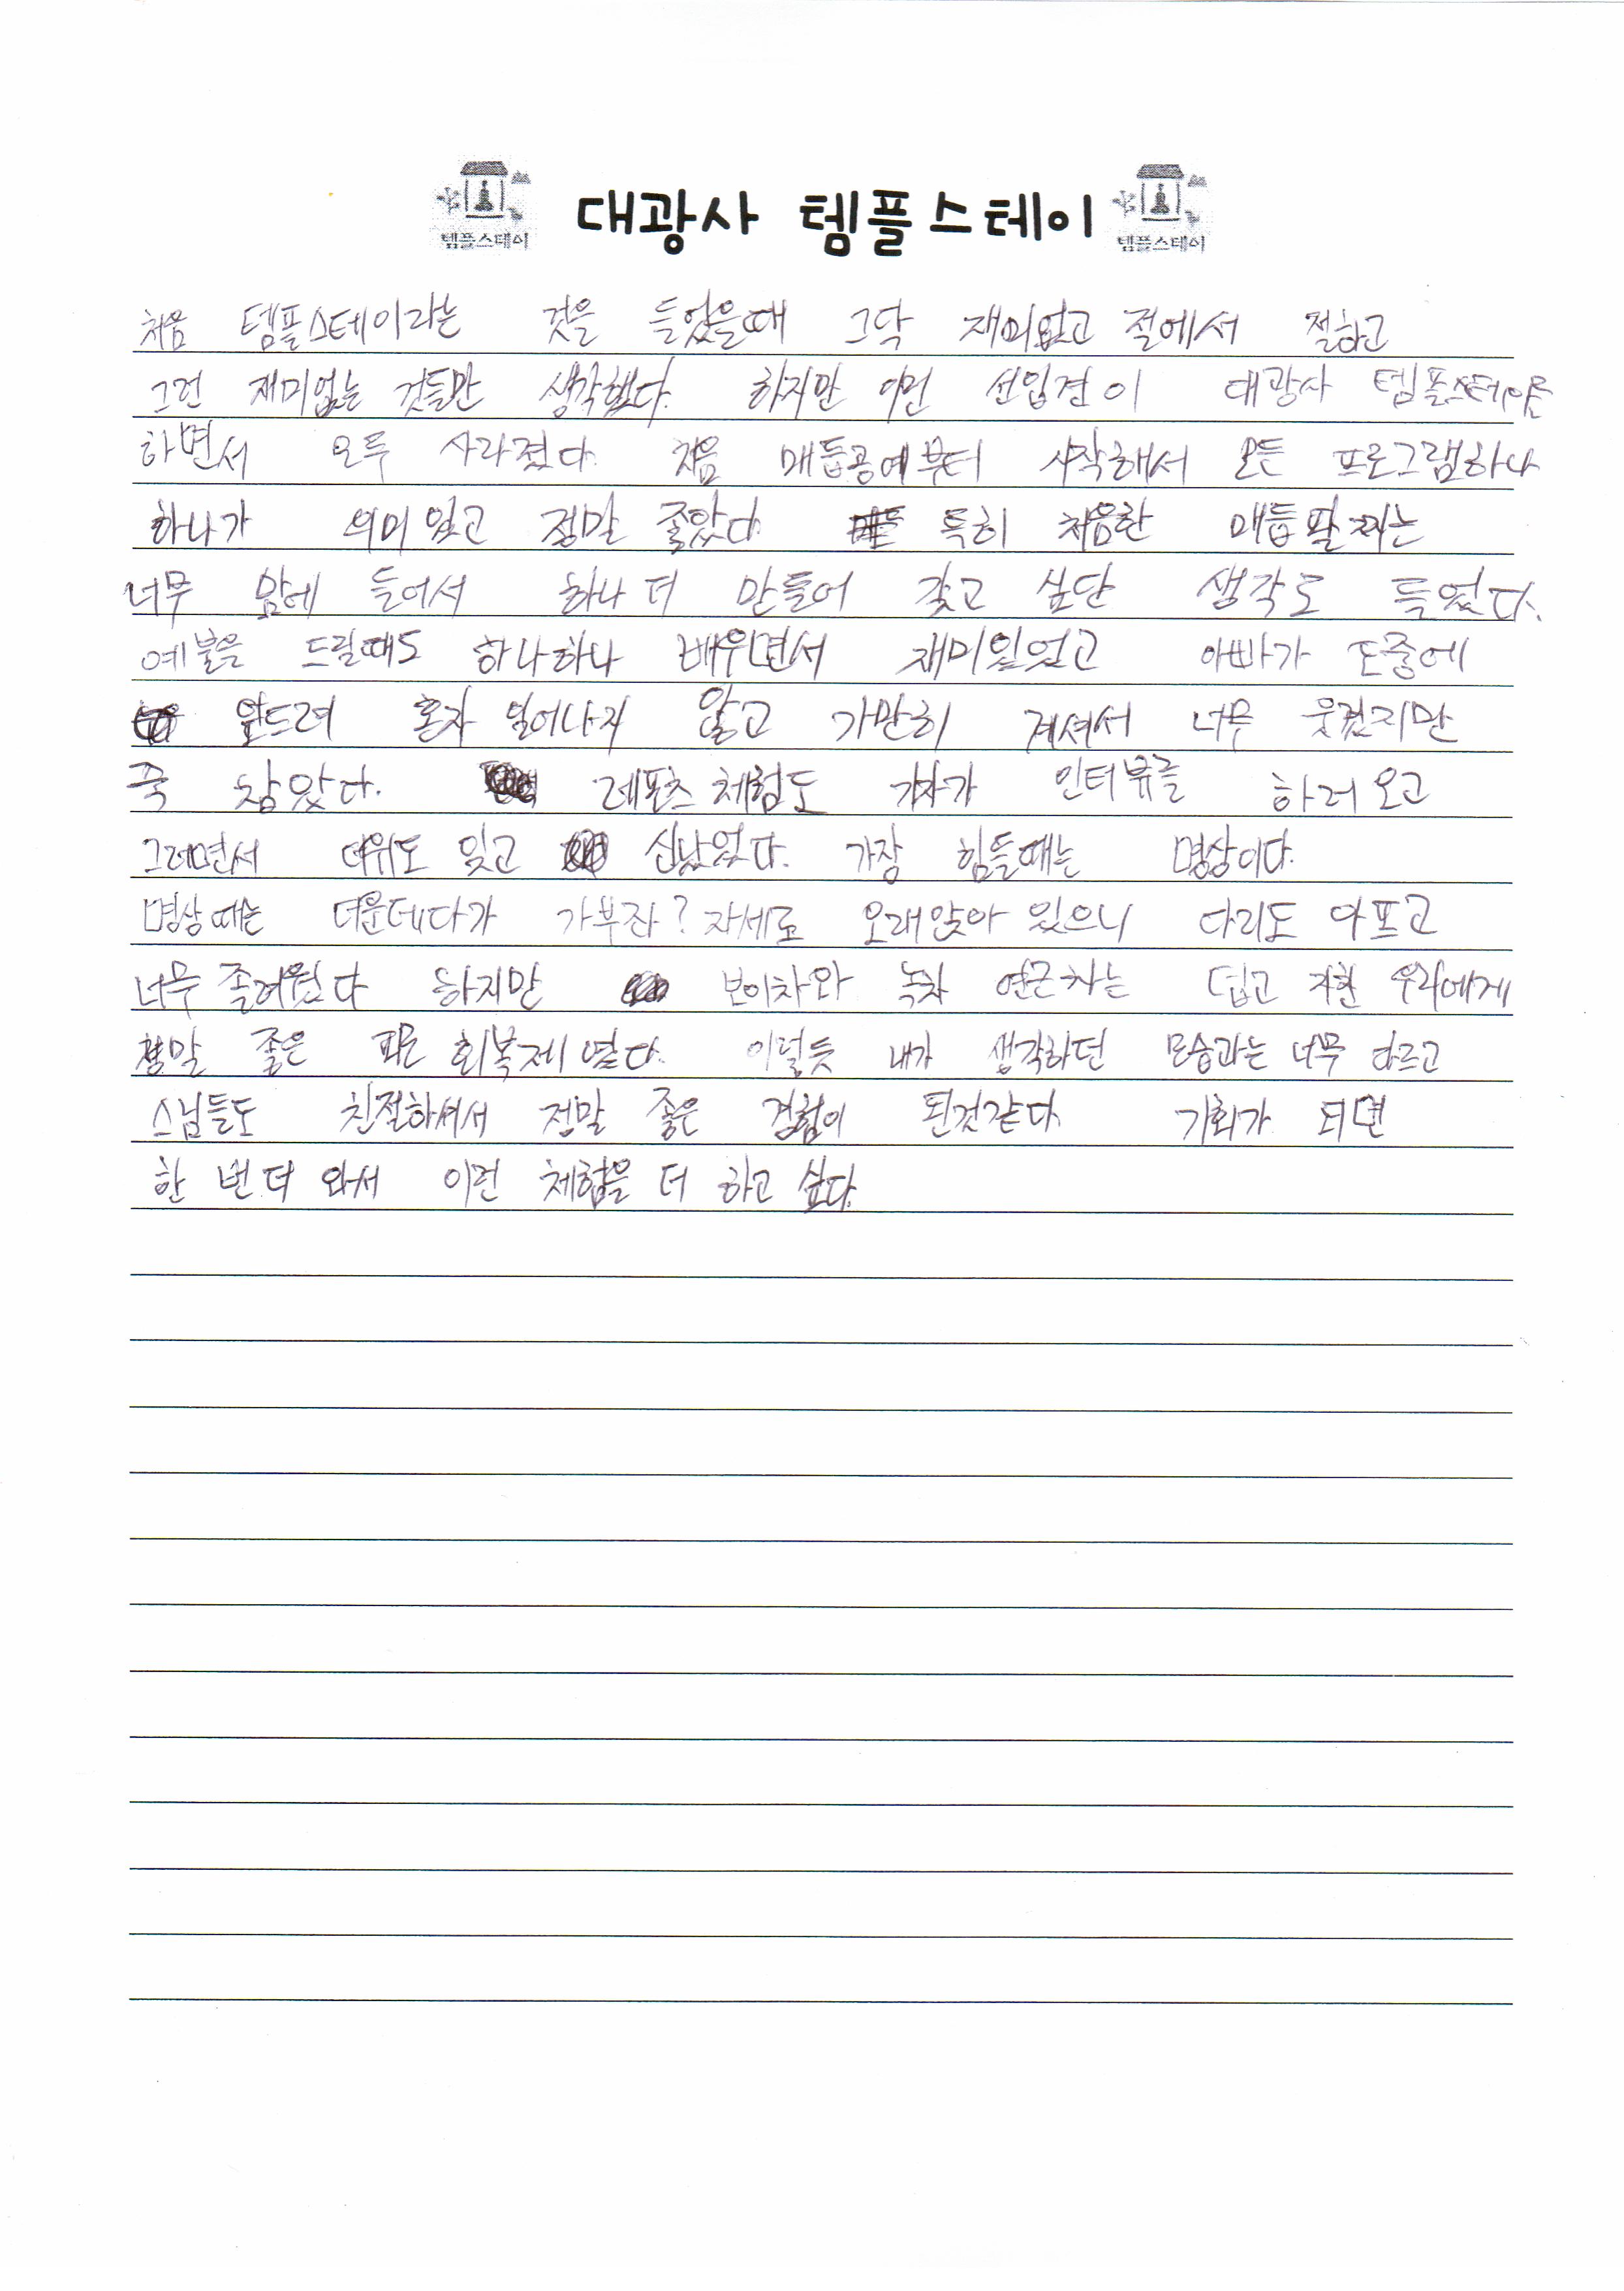 템플스테이 대광사 템플스테이 템플스테이
처음 템플스테이라는 것을 들었을때 그닥 재미없고 절에서 절하고
그런 재미없는 것들만 생각했다. 하지만 이런 선입견이 대광사 템플스테이를
하면서 모두 사라졌다. 처음 매듭공예부터 시작해서 모든 프로그램하나
하나가 의미 있고 정말 좋았다. 특히 처음한 매듭팔찌는
너무 맘에 들어서 하나 더 만들어 갖고 싶단 생각도 들었다.
예불을 드릴때도 하나하나 배우면서 재미있었고 아빠가 도중에
엎드려 혼자 일어나지 않고 가만히 계셔서 너무 웃겼지만
꾹 참았다. 레포츠 체험도 기자가 인터뷰를 하러 오고
그러면서 더위도 잊고 신났었다. 가장 힘들때는 명상이다.
명상때는 더운데다가 가부좌? 자세로 오래앉아 있으니 다리도 아프고
너무 졸려웠다 하지만 보이차와 녹차 연근차는 덥고 지친 우리에게
정말 좋은 피로 회복제 였다. 이렇듯 내가 생각하던 모습과는 너무 다르고
스님들도 친절하셔서 정말 좋은 경험이 된것같다. 기회가 되면
한 번 더 와서 이런 체험을 더 하고 싶다.